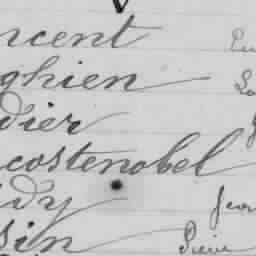 ncent
ghien
dier
costenobel
dy
sin Pierre